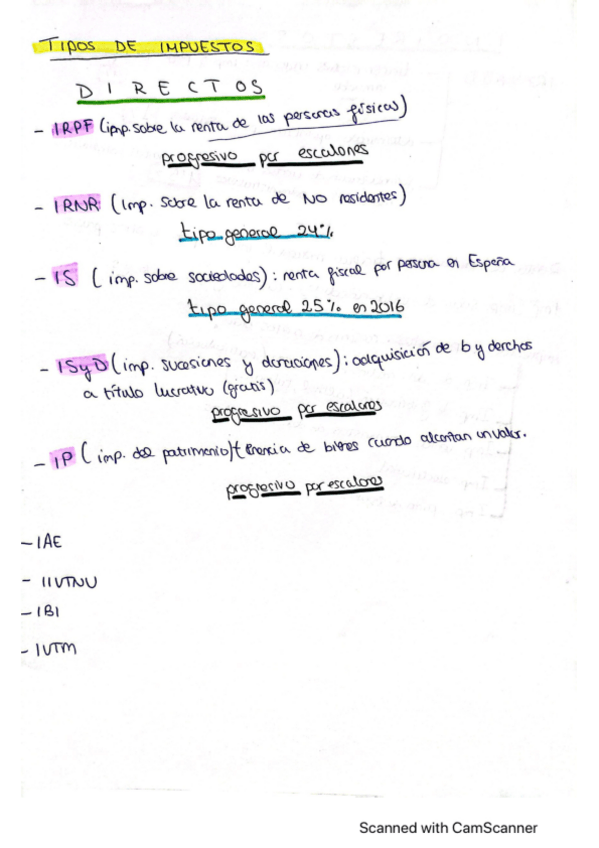 TIPOS DE IMPUESTOS
DIRECTOS
- IRPF (imp. sobre la renta de las personas físicas)
progresivo por escalones
- IRNR (Imp. sobre la renta de NO residentes)
tipo general 24%
- IS (imp. sobre sociedades): renta fiscal por persona en España
tipo general 25% en 2016
- ISyD (imp. sucesiones y donaciones): adquisición de b y derchos
a título lucrativo (gratis)
progresivo por escalones
- IP (imp. del patrimonio) tenencia de bienes cuando alcantan un valor.
progresivo por escalores
- IAE
- IIVTNU
- IBI
- IVTM
Scanned with CamScanner